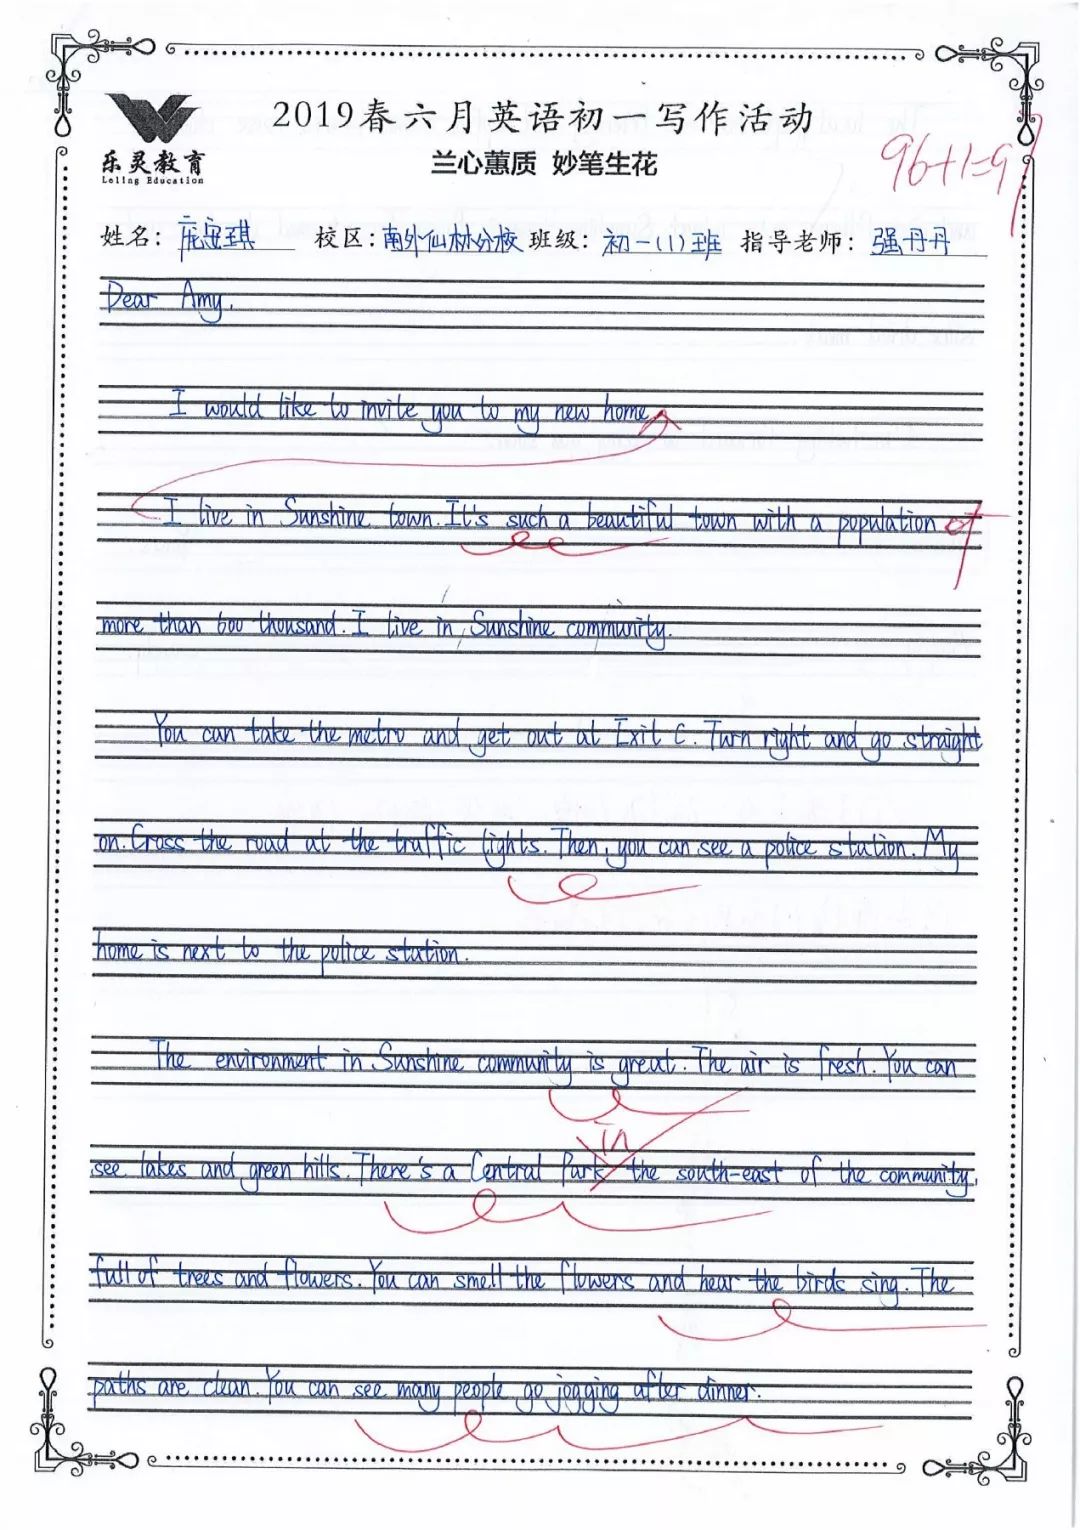 2019春六月英语初一写作活动
乐灵教育
Leling Education
兰心蕙质 妙笔生花
96+1=97
姓名: 校区: 南外仙林分校 班级: 初一(1)班 指导老师: 强丹丹
Dear Amy,
I would like to invite you to my new home.
I live in Sunshine town. It's such a beautiful town with a population of
more than 600 thousand. I live in Sunshine community.
You can take the metro and get out at Exit C. Turn right and go straight
on. Cross the road at the traffic lights. Then, you can see a police station. My
home is next to the police station.
The environment in Sunshine community is great. The air is fresh. You can
in
see lakes and green hills. There's a Central Park the south-east of the community,
full of trees and flowers. You can smell the flowers and hear the birds sing. The
paths are clean. You can see many people go jogging after dinner.